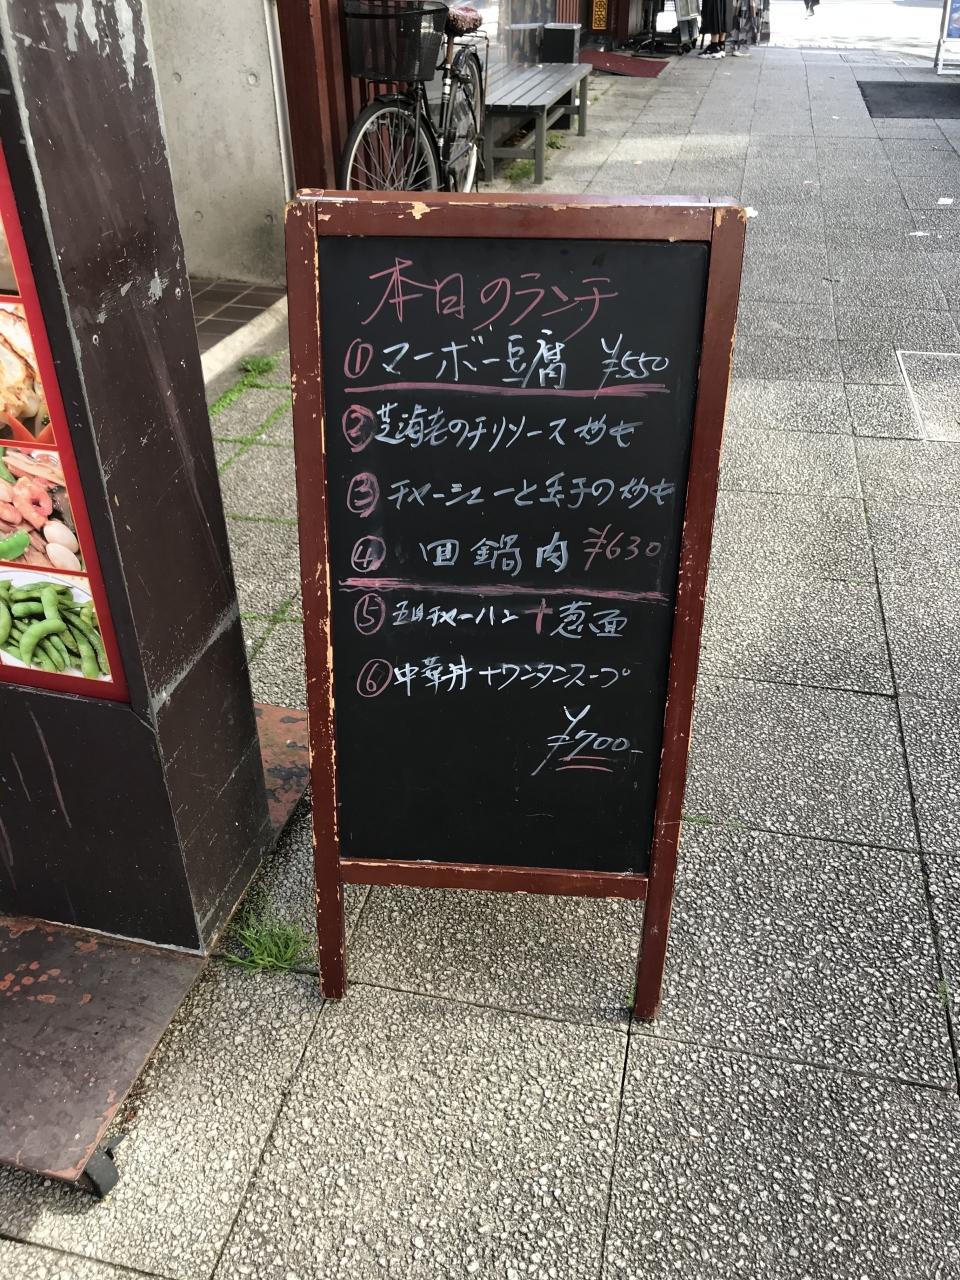 本日のランチ
①マーボー豆腐 ¥550
②芝海老のチリソース炒セ
③チャーシューと玉子の炒セ
④ 回鍋肉 ¥630
⑤五目チャーハン+葱面
⑥中華丼+ワンタンスープ
¥700-